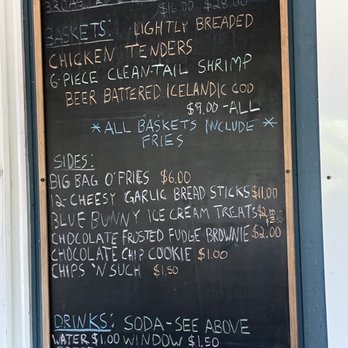 $16.00 $28.00
BASKETS: LIGHTLY BREADED
CHICKEN TENDERS
6-PIECE CLEAN-TAIL SHRIMP
BEER BATTERED ICELANDIC COD
$9.00-ALL
*ALL BASKETS INCLUDE *
FRIES
SIDES:
BIG BAG O'FRIES $6.00
12-CHEESY GARLIC BREAD STICKS $11.00
BLUE BUNNY ICE CREAM TREATS
CHOCOLATE FROSTED FUDGE BROWNIE $2.00
CHOCOLATE CHIP COOKIE $1.00
CHIPS 'N SUCH $1.50
DRINKS: SODA-SEE ABOVE
WATER $1.00 WINDOW $1.50